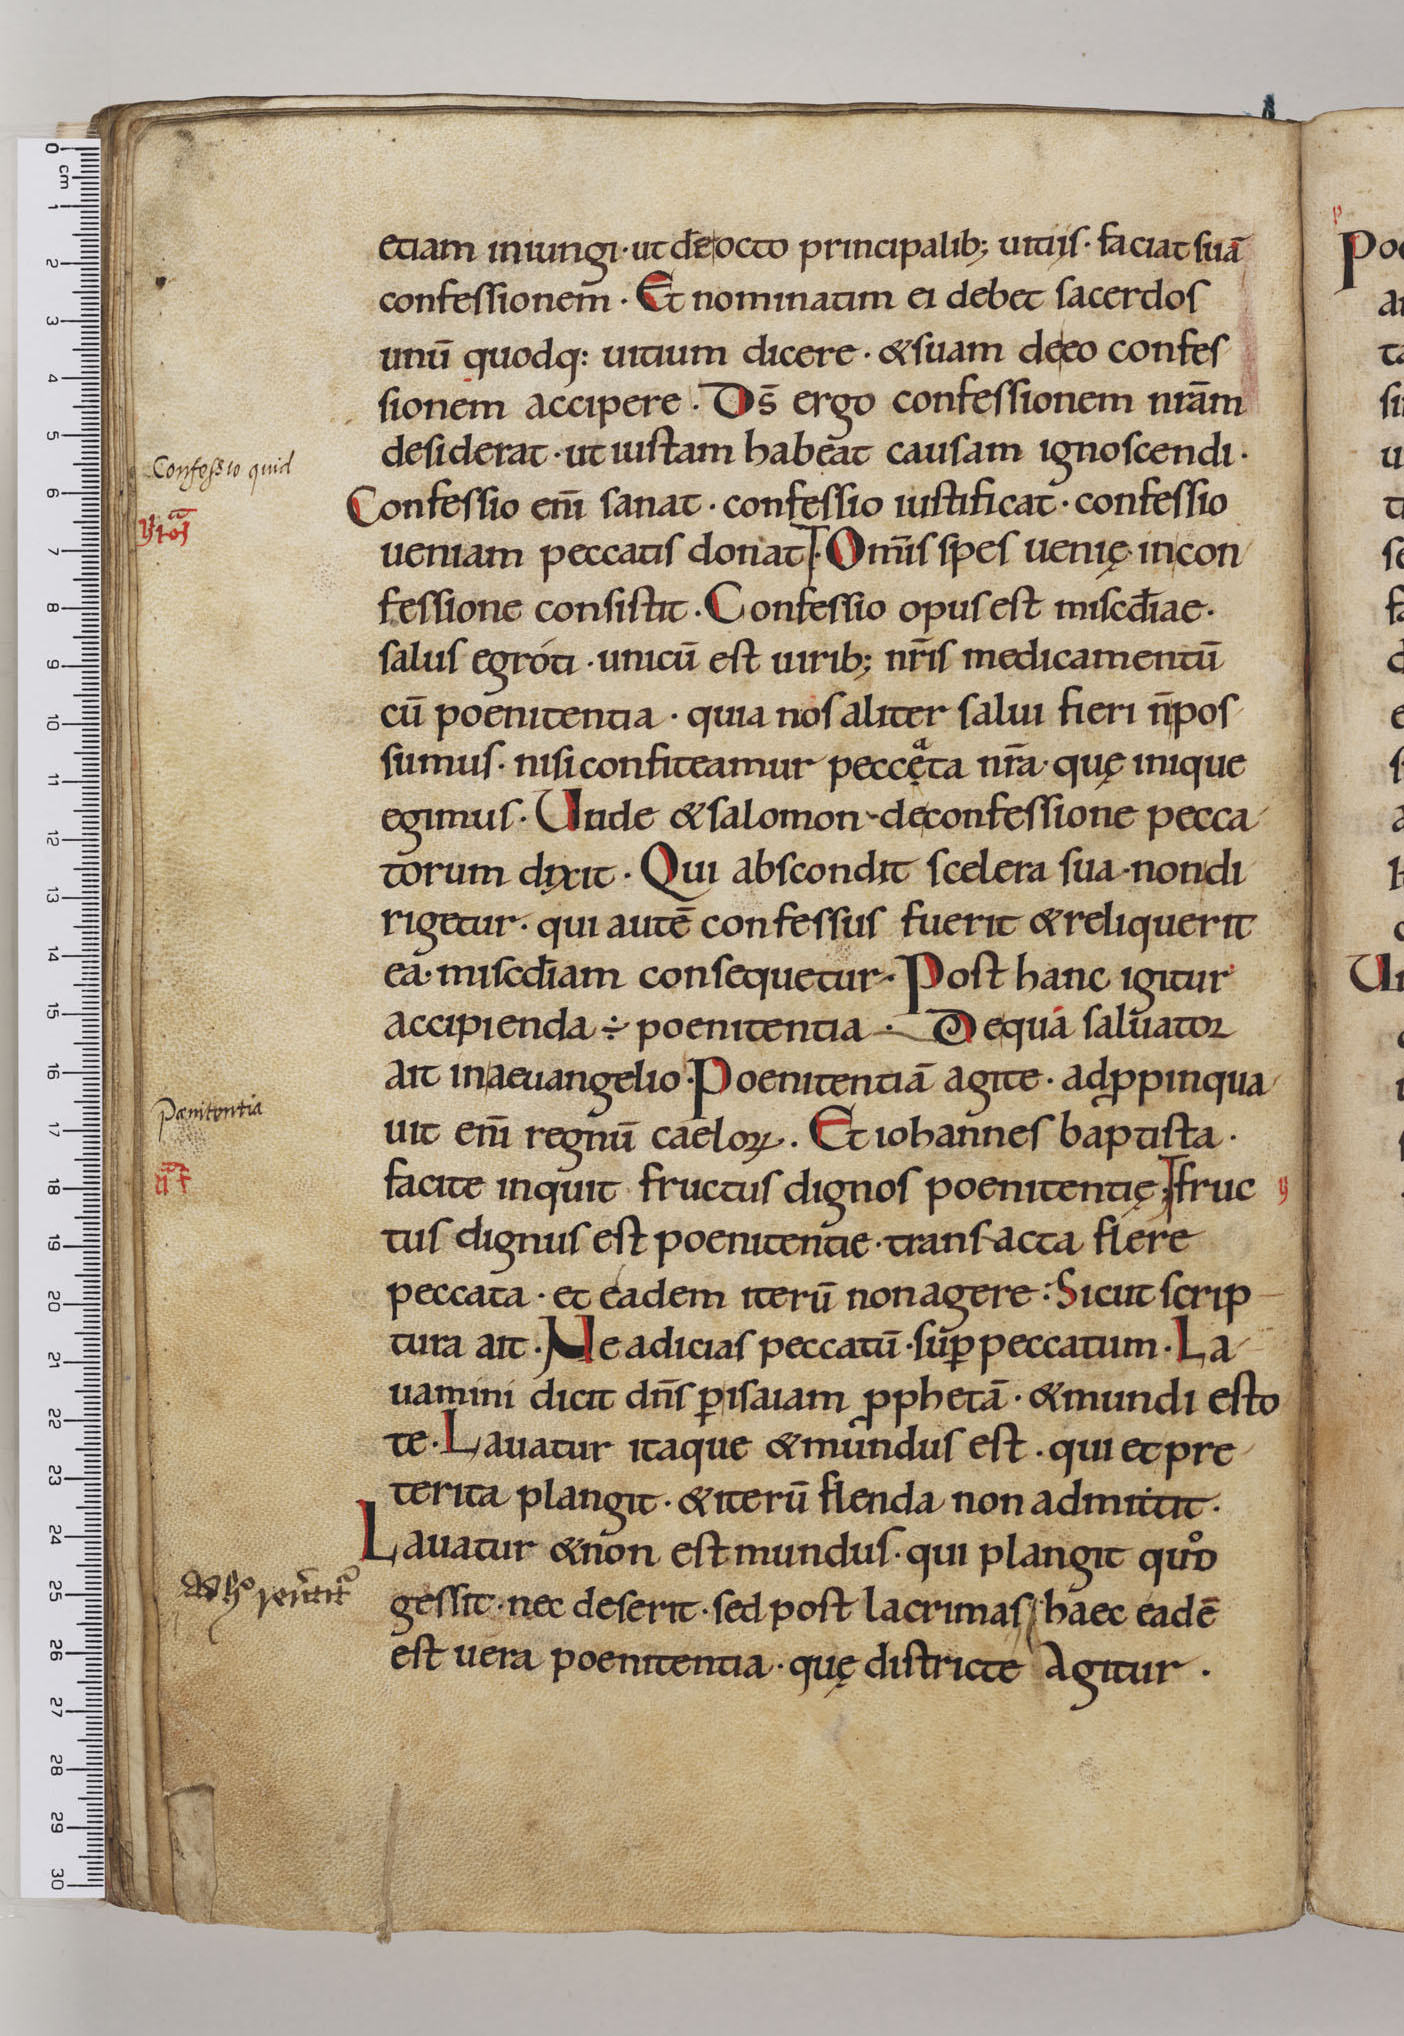 etiam iniungi · ut de octo principalib; uitiis · faciat suā
confessionem · Et nominatim ei debet sacerdos
unū quodq: uitium dicere · & suam de eo confes
sionem accipere · Ds̄ ergo confessionem nr̄am
desiderat · ut iustam habeat causam ignoscendi ·
Confessio quid
Confessio eni̅ sanat · confessio iustificat · confessio
ueniam peccatis donat · Om̄is spes uenię in con
fessione consistit · Confessio opus est misc̄diae ·
salus egróti · unicū est uirib; nr̄is medicamentū
cū poenitentia · quia nos aliter salui fieri n̄ pos
sumus · nisi confiteamur peccẹata nr̄a · quę inique
egimus · Unde & salomon · de confessione pecca
torum dixit · Qui abscondit scelera sua · non di
rigetur · qui autē confessus fuerit & reliquerit
ea · misc̄diam consequetur · Post hanc igitur
accipienda ÷ poenitentia · De qua saluator
ait in aeuangelio · Poenitentiā agite · adꝓpinqua
Pœnitentia
uit eni̅ regnū caeloꝝ · Et iohannes baptista ·
facite inquit fructus dignos poenitentię ; fruc
tus dignus est poenitentie · transacta flere
peccata · et eadem iterū non agere : Sicut scrip
tura ait · Ne adicias peccatū · suꝑ peccatum · La
uamini dicit dn̄s ꝑ isaiam ꝓphetā · & mundi esto
te · Lauatur itaque & mundus est · qui et pre
terita plangit · & iterū flenda non admittit ·
Lauatur & non est mundus · qui plangit quod
gessit · nec deserit · sed post lacrimas / haec eadē
est uera poenitentia · quę districte Agitur ·